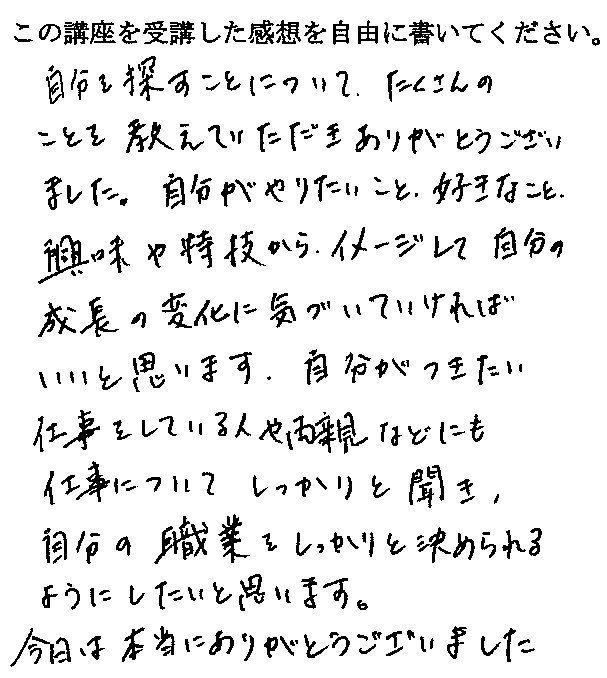 この講座を受講した感想を自由に書いてください。
自分を探すことについて、たくさんの
ことを教えていただきありがとうござい
ました。自分がやりたいこと、好きなこと、
興味や特技から、イメージして自分の
成長の変化に気づいていければ
いいと思います。自分がつきたい
仕事をしている人や両親などにも
仕事についてしっかりと聞き、
自分の職業をしっかりと決められる
ようにしたいと思います。
今日は本当にありがとうございました